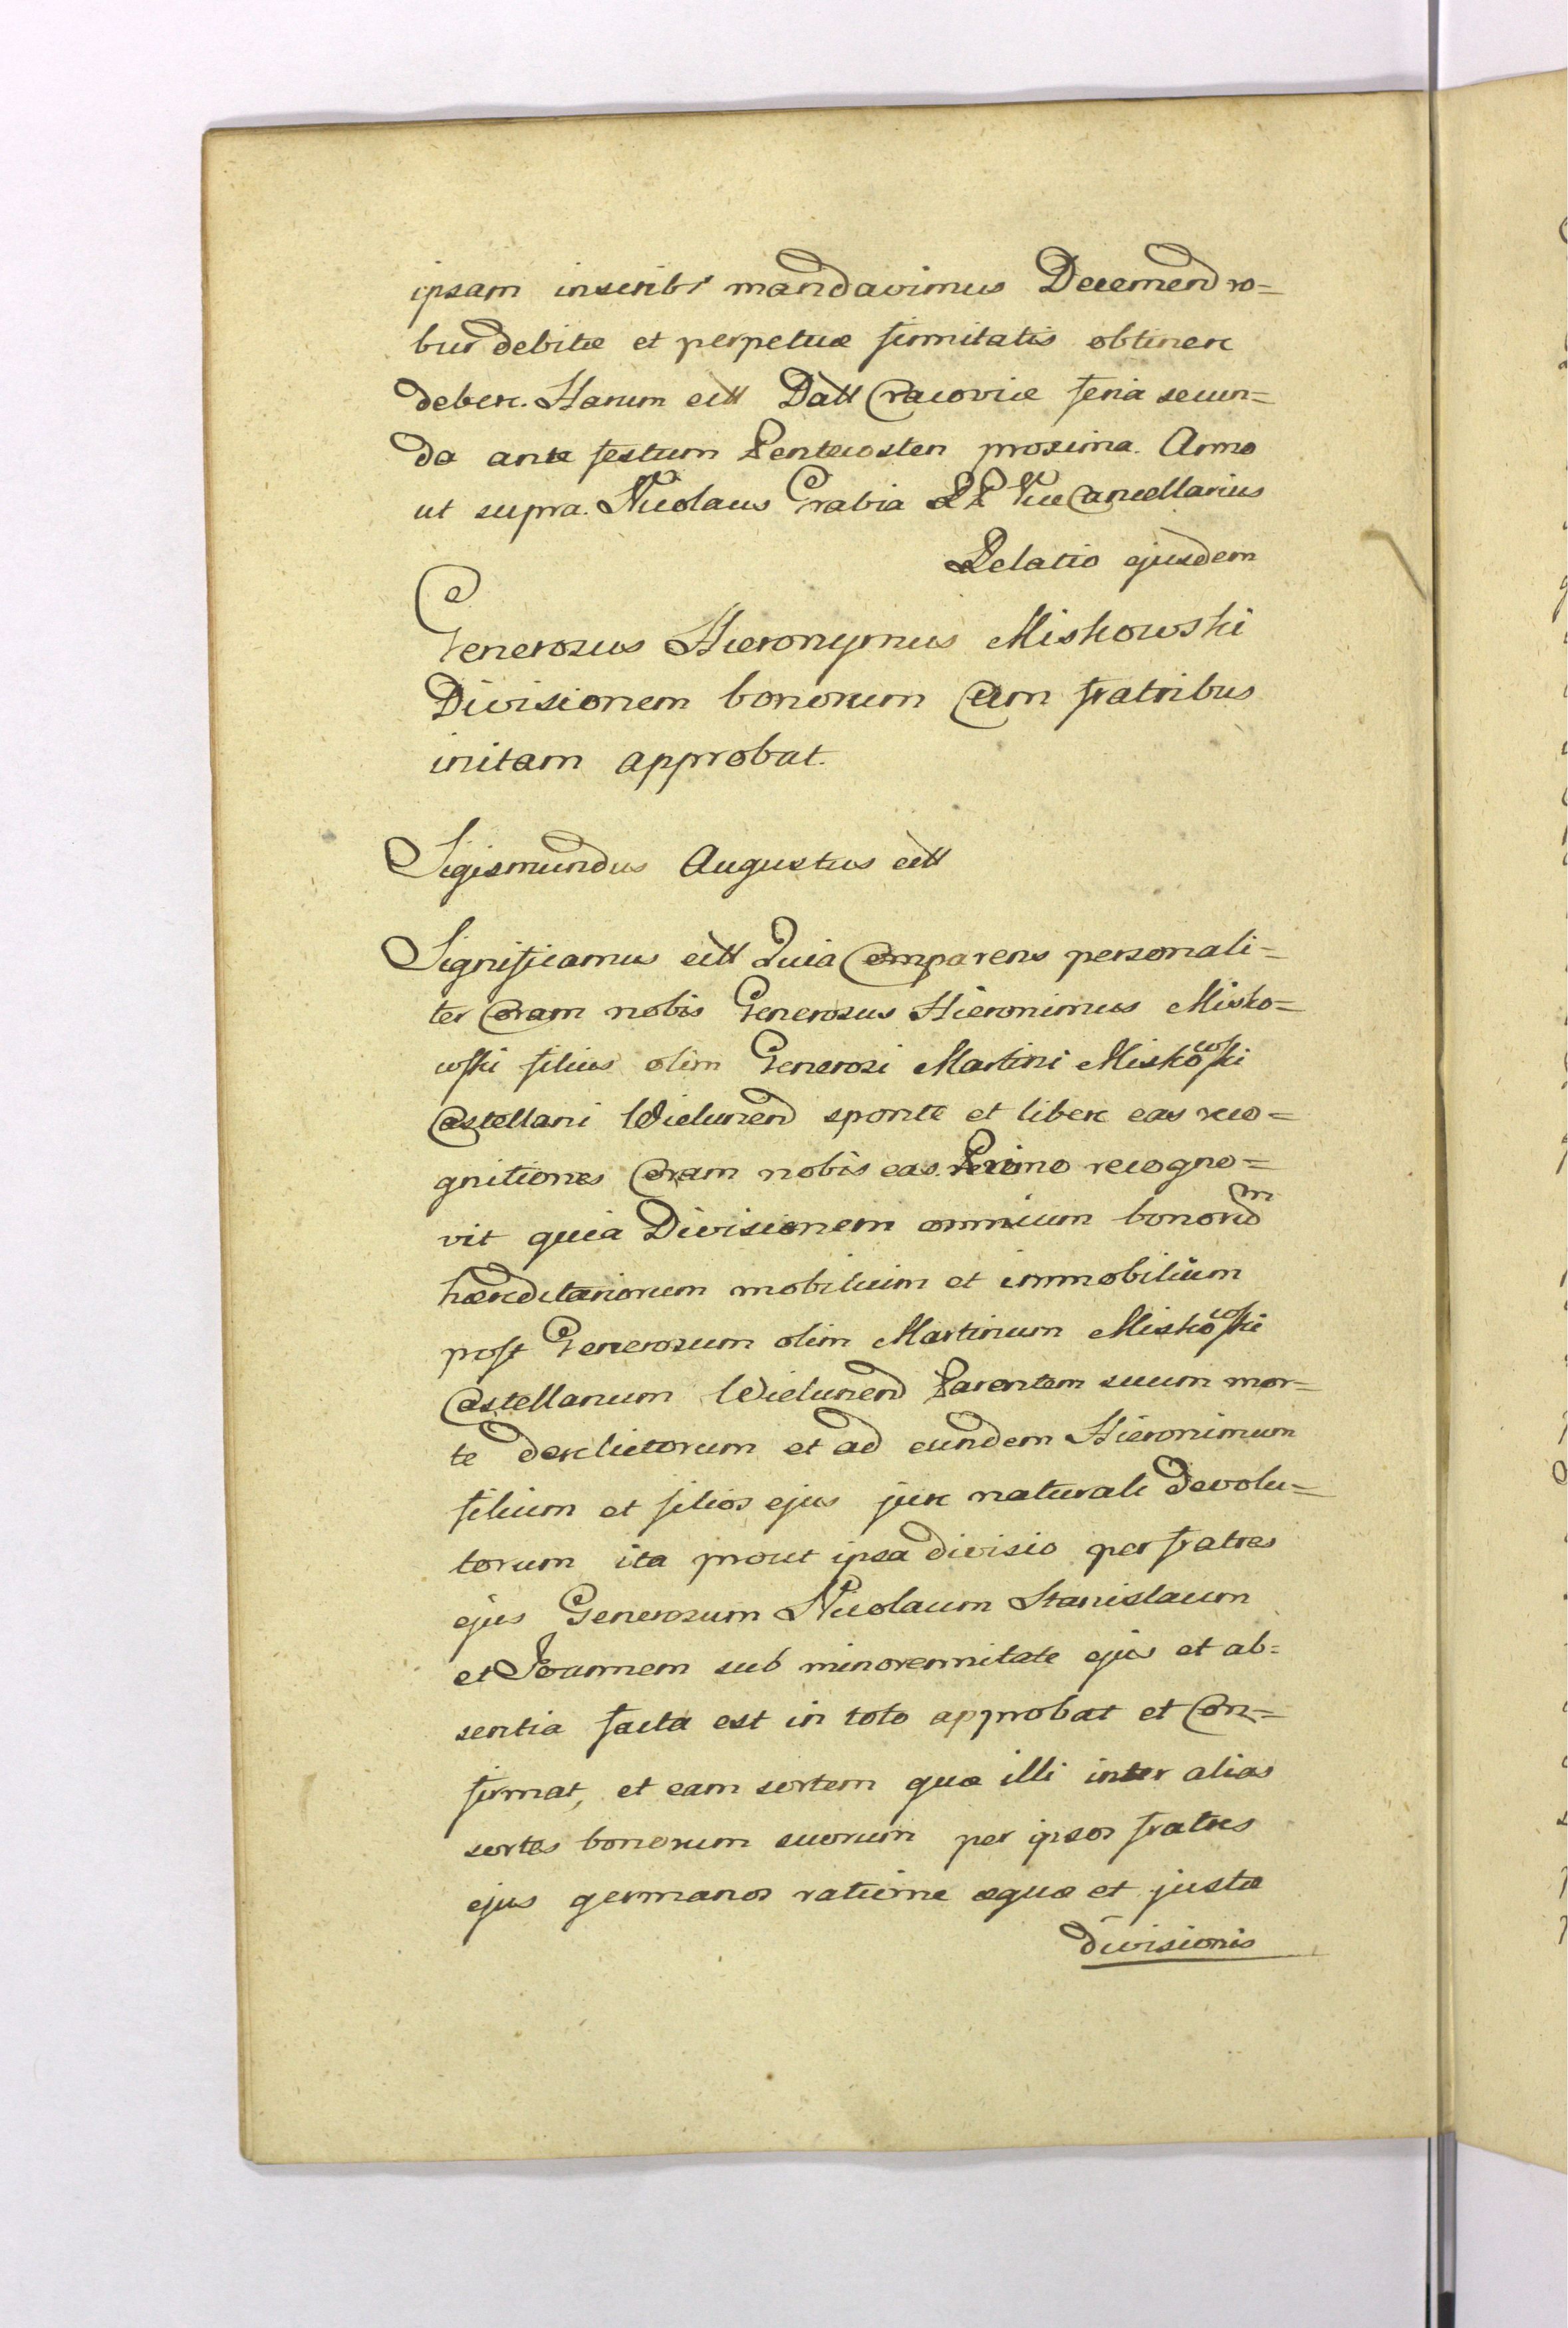 ipsam inscribi mandavimus Decernend ro=
bur debitæ et perpetuæ firmitatis obtinere
debere. Harum ett Datt Cracoviæ feria secun=
da ante festum Pentecosten proxima. Anno
ut supra. Nicolaus Grabia RP ViceCancellarius
Relatio ejusdem
Generosus Hieronymus Miskowski
Divisionem bonorum Cum fratribus
initam approbat.
Sigismundus Augustus ett
Significamus ett Quia Comparens personali=
ter Coram nobis Generosus Hieronimus Misko=
wski filius olim Generosi Martini Miskowski
Castellani Wielunend sponte et libere eas reco=
gnitiones Coram nobis eas. Primo recogno=
vit quia Divisionem omnium bonorum
hæreditariorum mobilium et immobilium
post Generosum olim Martinum Miskowski
Castellanum Wielunend Parentem suum mor=
te derelictorum et ad eundem Hieronimum
filium et filios ejus jure naturali devolu=
torum ita prout ipsa divisio per fratres
ejus Generosum Nicolaum Stanislaum
et Joannem sub minorennitate ejus et ab=
sentia facta est in toto approbat et Con=
firmat, et eam sortem quæ illi inter alias
sortes bonorum suorum per ipsos fratres
ejus germanos ratione æquæ et justæ
divisionis